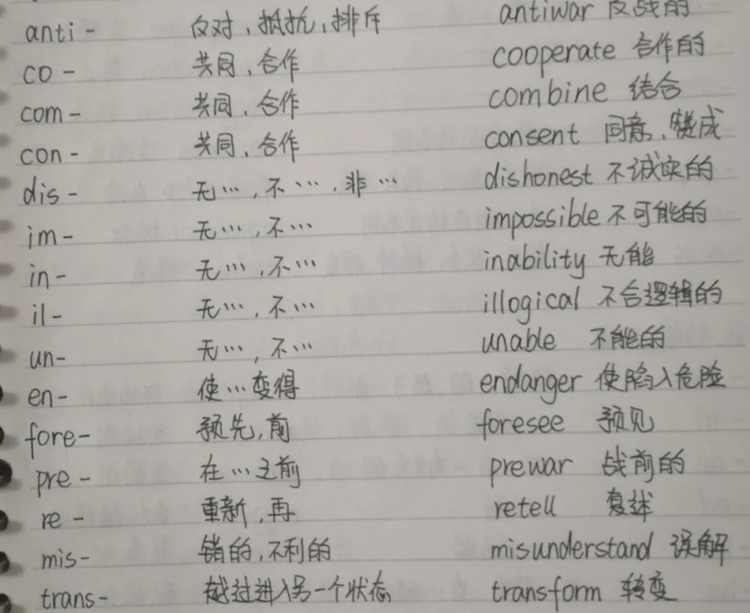 anti- 反对,抵抗,排斥 antiwar 反战的
co- 共同,合作 cooperate 合作的
com- 共同,合作 combine 结合
con- 共同,合作 consent 同意,赞成
dis- 无…,不…,非… dishonest 不诚实的
im- 无…,不… impossible 不可能的
in- 无…,不… inability 无能
il- 无…,不… illogical 不合逻辑的
un- 无…,不… unable 不能的
en- 使…变得 endanger 使陷入危险
fore- 预先,前 foresee 预见
pre- 在…之前 prewar 战前的
re- 重新,再 retell 复述
mis- 错的,不利的 misunderstand 误解
trans- 越过进入另一个状态 transform 转变